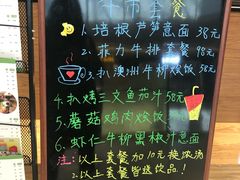 午市套餐
1.培根芦笋意面 38元
2.菲力牛排套餐 98元
3.扒澳州牛柳烩饭 58元
4.扒烤三文鱼茄汁 58元
5.蘑菇鸡肉烩饭 50元
6.虾仁牛柳黑椒汁意面
注:以上套餐加10元换浓汤
2.以上套餐皆送饮品!